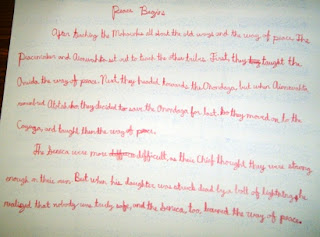 Peace Begins
After teaching the Mohawks all about the old ways and the way of peace. The
Peacemaker and Aionwantha set out to teach the other tribes. First, they taught the
Oneida the way of peace. Next they headed towards the Onondaga, but when Aionwantha
they decided to save the Onondaga for last. So they moved on to the
Cayuga, and taught them the way of peace.
The Seneca were more difficult, as their Chief thought they were strong
enough on their own. But when his daughter was struck dead by a bolt of lightning, he
realized that nobody was truly safe, and the Seneca, too, learned the way of peace.